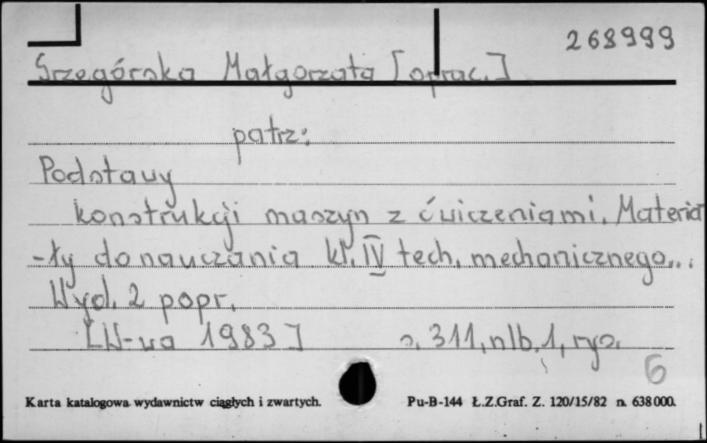 268999
Szegórska Małgorzata [oprac.]
patrz:
Podstawy
konstrukcji maszyn z ćwiczeniami. Materia
-ły do nauczania kl. IV tech. mechanicznego...
Wyd. 2 popr.
[W-wa 1983] s. 311, nlb. 1, rys.
6
Karta katalogowa wydawnictw ciągłych i zwartych. Pu-B-144 Ł.Z.Graf. Z. 120/15/82 n. 638000.